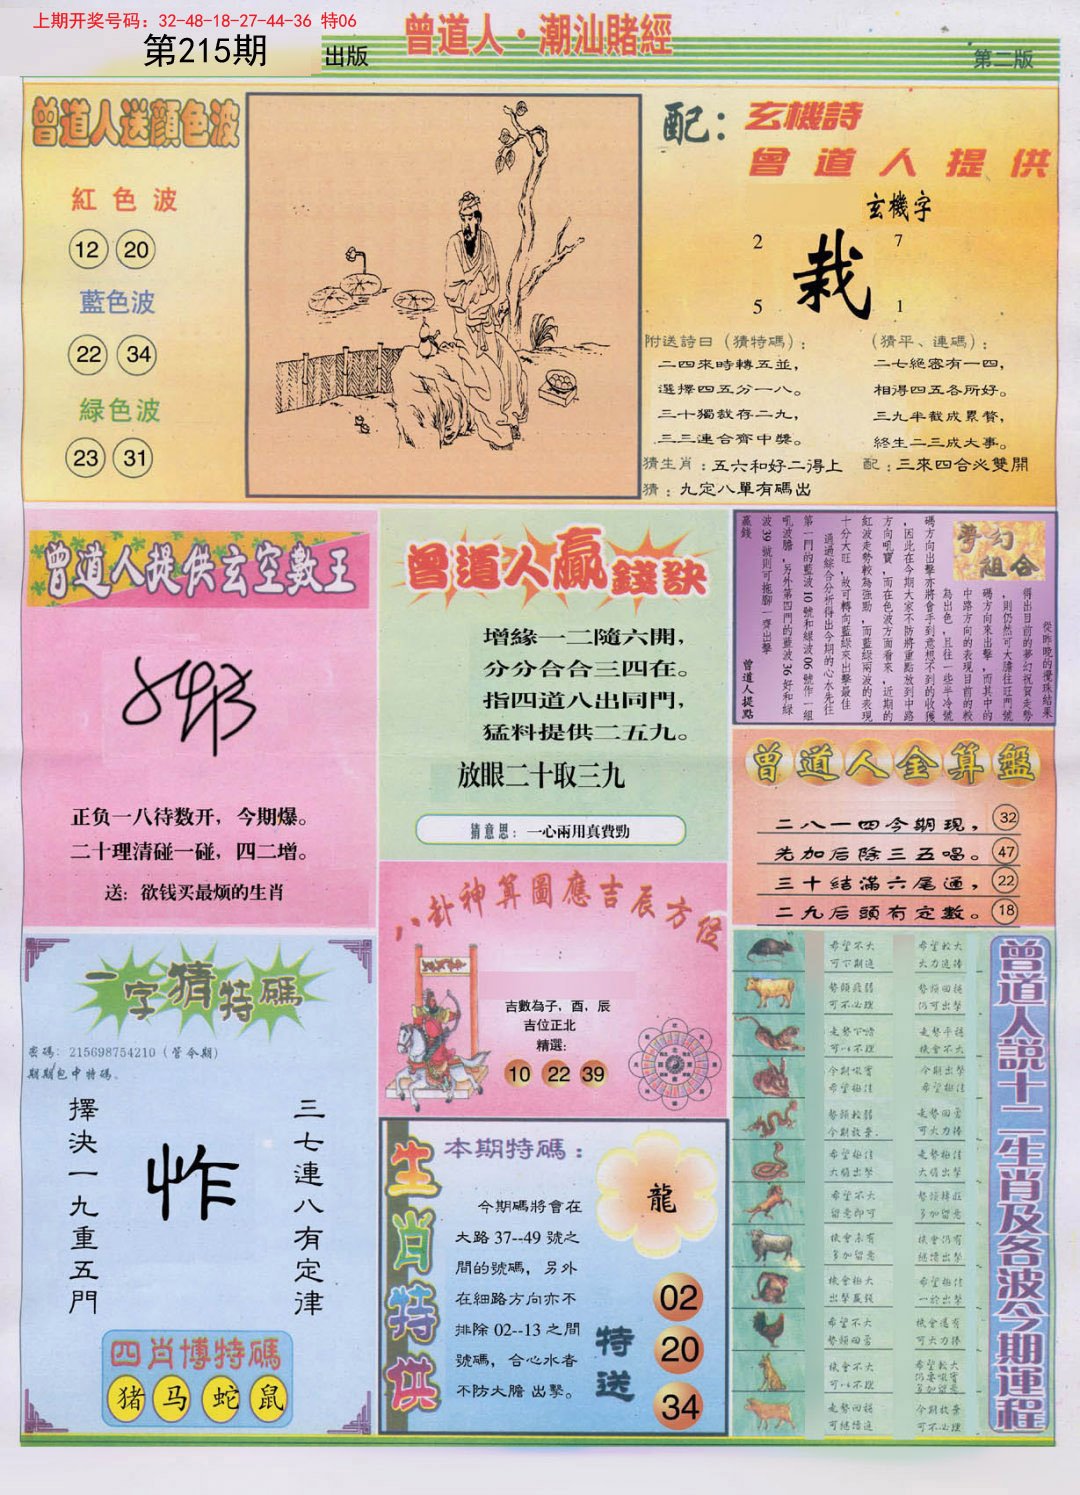 上期开奖号码：32-48-18-27-44-36 特06
第215期
出版
曾道人·潮汕賭經
第二版
曾道人送顔色波
紅色波
12 20
藍色波
22 34
緑色波
23 31
配：玄機詩
曾道人提供
玄機字
2 7
栽
5 1
附送詩曰（猜特碼）；
二四來時轉五並，
選擇四五分一八。
三十獨裁存二九，
三三連合齊中獎。
（猜平、連碼）；
二七絕密有一四，
相得四五各所好。
三九半截成累贅，
終生二三成大事。
猜生肖：五六和好二得上
配：三來四合必雙開
猜：九定八單有碼出
曾道人提供玄空數王
正负一八待数开，今期爆。
二十理清碰一碰，四二增。
送：欲钱买最烦的生肖
曾道人贏錢訣
增緣一二隨六開，
分分合合三四在。
指四道八出同門，
猛料提供二五九。
放眼二十取三九
猜意思：一心兩用真費勁
夢幻組合
從昨晚的攪珠結果
得出目前的夢幻祝賀走勢
，則仍然可大膽往旺門號
碼方向來出擊，而其中的
中路方向的表現目前的較
為出色，且往一些半冷號
碼方向出擊亦將會手到意想不到的收獲
，因此在今期大家不防將重點放到中路
方向吼寶，而在色波方面看來，近期的
紅波走勢較為強勁，而藍綠兩波的表現
十分大旺，故可轉向藍綠來出擊最佳
通過綜合分析得出今期的心水先往
第一門的藍波10號和綠波06號作一組
吼波膽，另外第四門的藍波36好和綠
波39號則可拖腳一齊出擊
贏錢
曾道人提點
曾道人金算盤
二八一四今期現， 32
先加后除三五唱。 47
三十結滿六尾通， 22
二九后頭有定數。 18
八卦神算圖應吉辰方位
吉數為子，酉，辰
吉位正北
精選:
10 22 39
一字猜特碼
密碼：215698754210（管令期）
期期包中特碼、
擇決一九重五門
怍
三七連八有定律
四肖博特碼
猪 马 蛇 鼠
生肖特供
本期特碼：
今期碼將會在
大路37--49號之
間的號碼，另外
在細路方向亦不
排除02--13之間
號碼，合心水者
不防大膽出擊。
龍
特送
02
20
34
曾道人說十二生肖及各波今期運程
希望不大
可下期追
希望較大
大力追捧
勢頭疲弱
可不必理
勢頭回穩
仍可出擊
走勢下滑
可以不理
走勢平穩
機會不大
今期吼寶
希望極佳
今期出擊
希望極佳
勢頭較弱
今期放棄.
走勢回勇
可大力捧
希望極佳
大膽出擊
走勢極佳
大膽出擊
希望不大
留意即可
勢頭轉旺
多加留意
機會未有
多加留意
機會仍有
繼續出擊
機會極大
出擊贏錢
希望極佳
一於出擊
希望不大
勢頭回勇
機會還有
可大力捧
機會不大
可以不理
希望較大
仍要吼實
多加留意
走勢回穩
可繼續追
今期放棄
可不必理